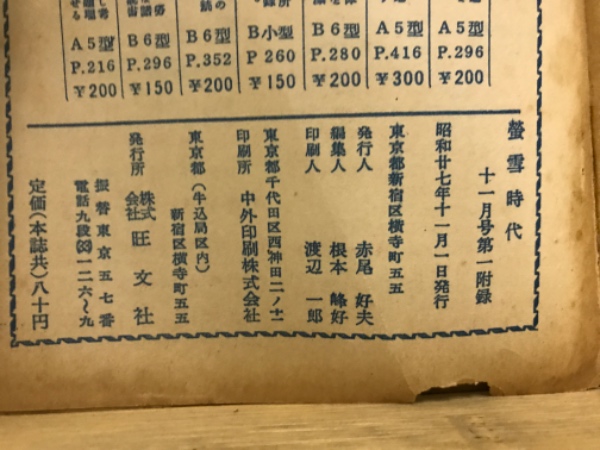 A5型
P.296
¥200
A5型
P.416
¥300
B6型
P.280
¥200
B小型
P 260
¥150
B6型
P.352
¥200
B6型
P.296
¥150
A5型
P.216
¥200
螢雪時代
十一月号第一附録
昭和廿七年十一月一日発行
東京都新宿区横寺町五五
発行人 赤尾好夫
編集人 根本峰好
印刷人 渡辺一郎
東京都千代田区西神田二ノ十二
印刷所 中外印刷株式会社
東京都(牛込局区内)
新宿区横寺町五五
発行所 株式会社 旺文社
振替東京五七番
電話九段(33)一二六〜九
定価(本誌共)八十円